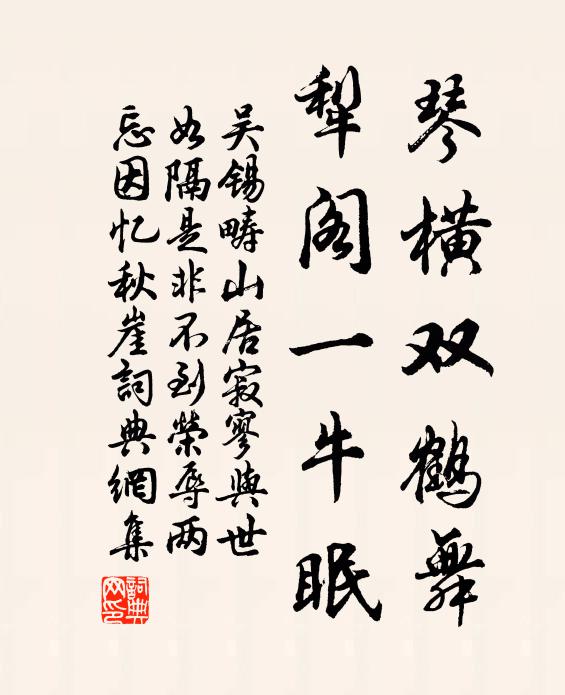 琴横双鹤舞
犁阁一牛眠
吴锡畴山居寂寥与世
如隔是非不到荣辱两
忘因忆秋崖詞典網集
詞典网印